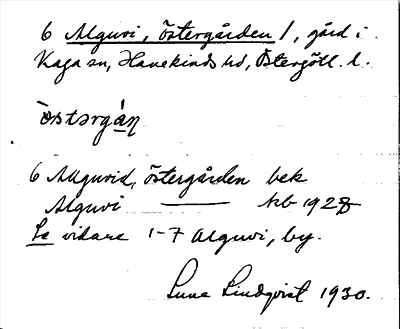 6 Alguvi, Östergården 1, gård i
Kaga sn, Hanekinds hd, Östergötl. l.
östərgán
6 Alguvid, Östergården bek
Alguvi —— kb 1928
Se vidare 1-7 Alguvi, by.
Sune Lindqvist 1930.